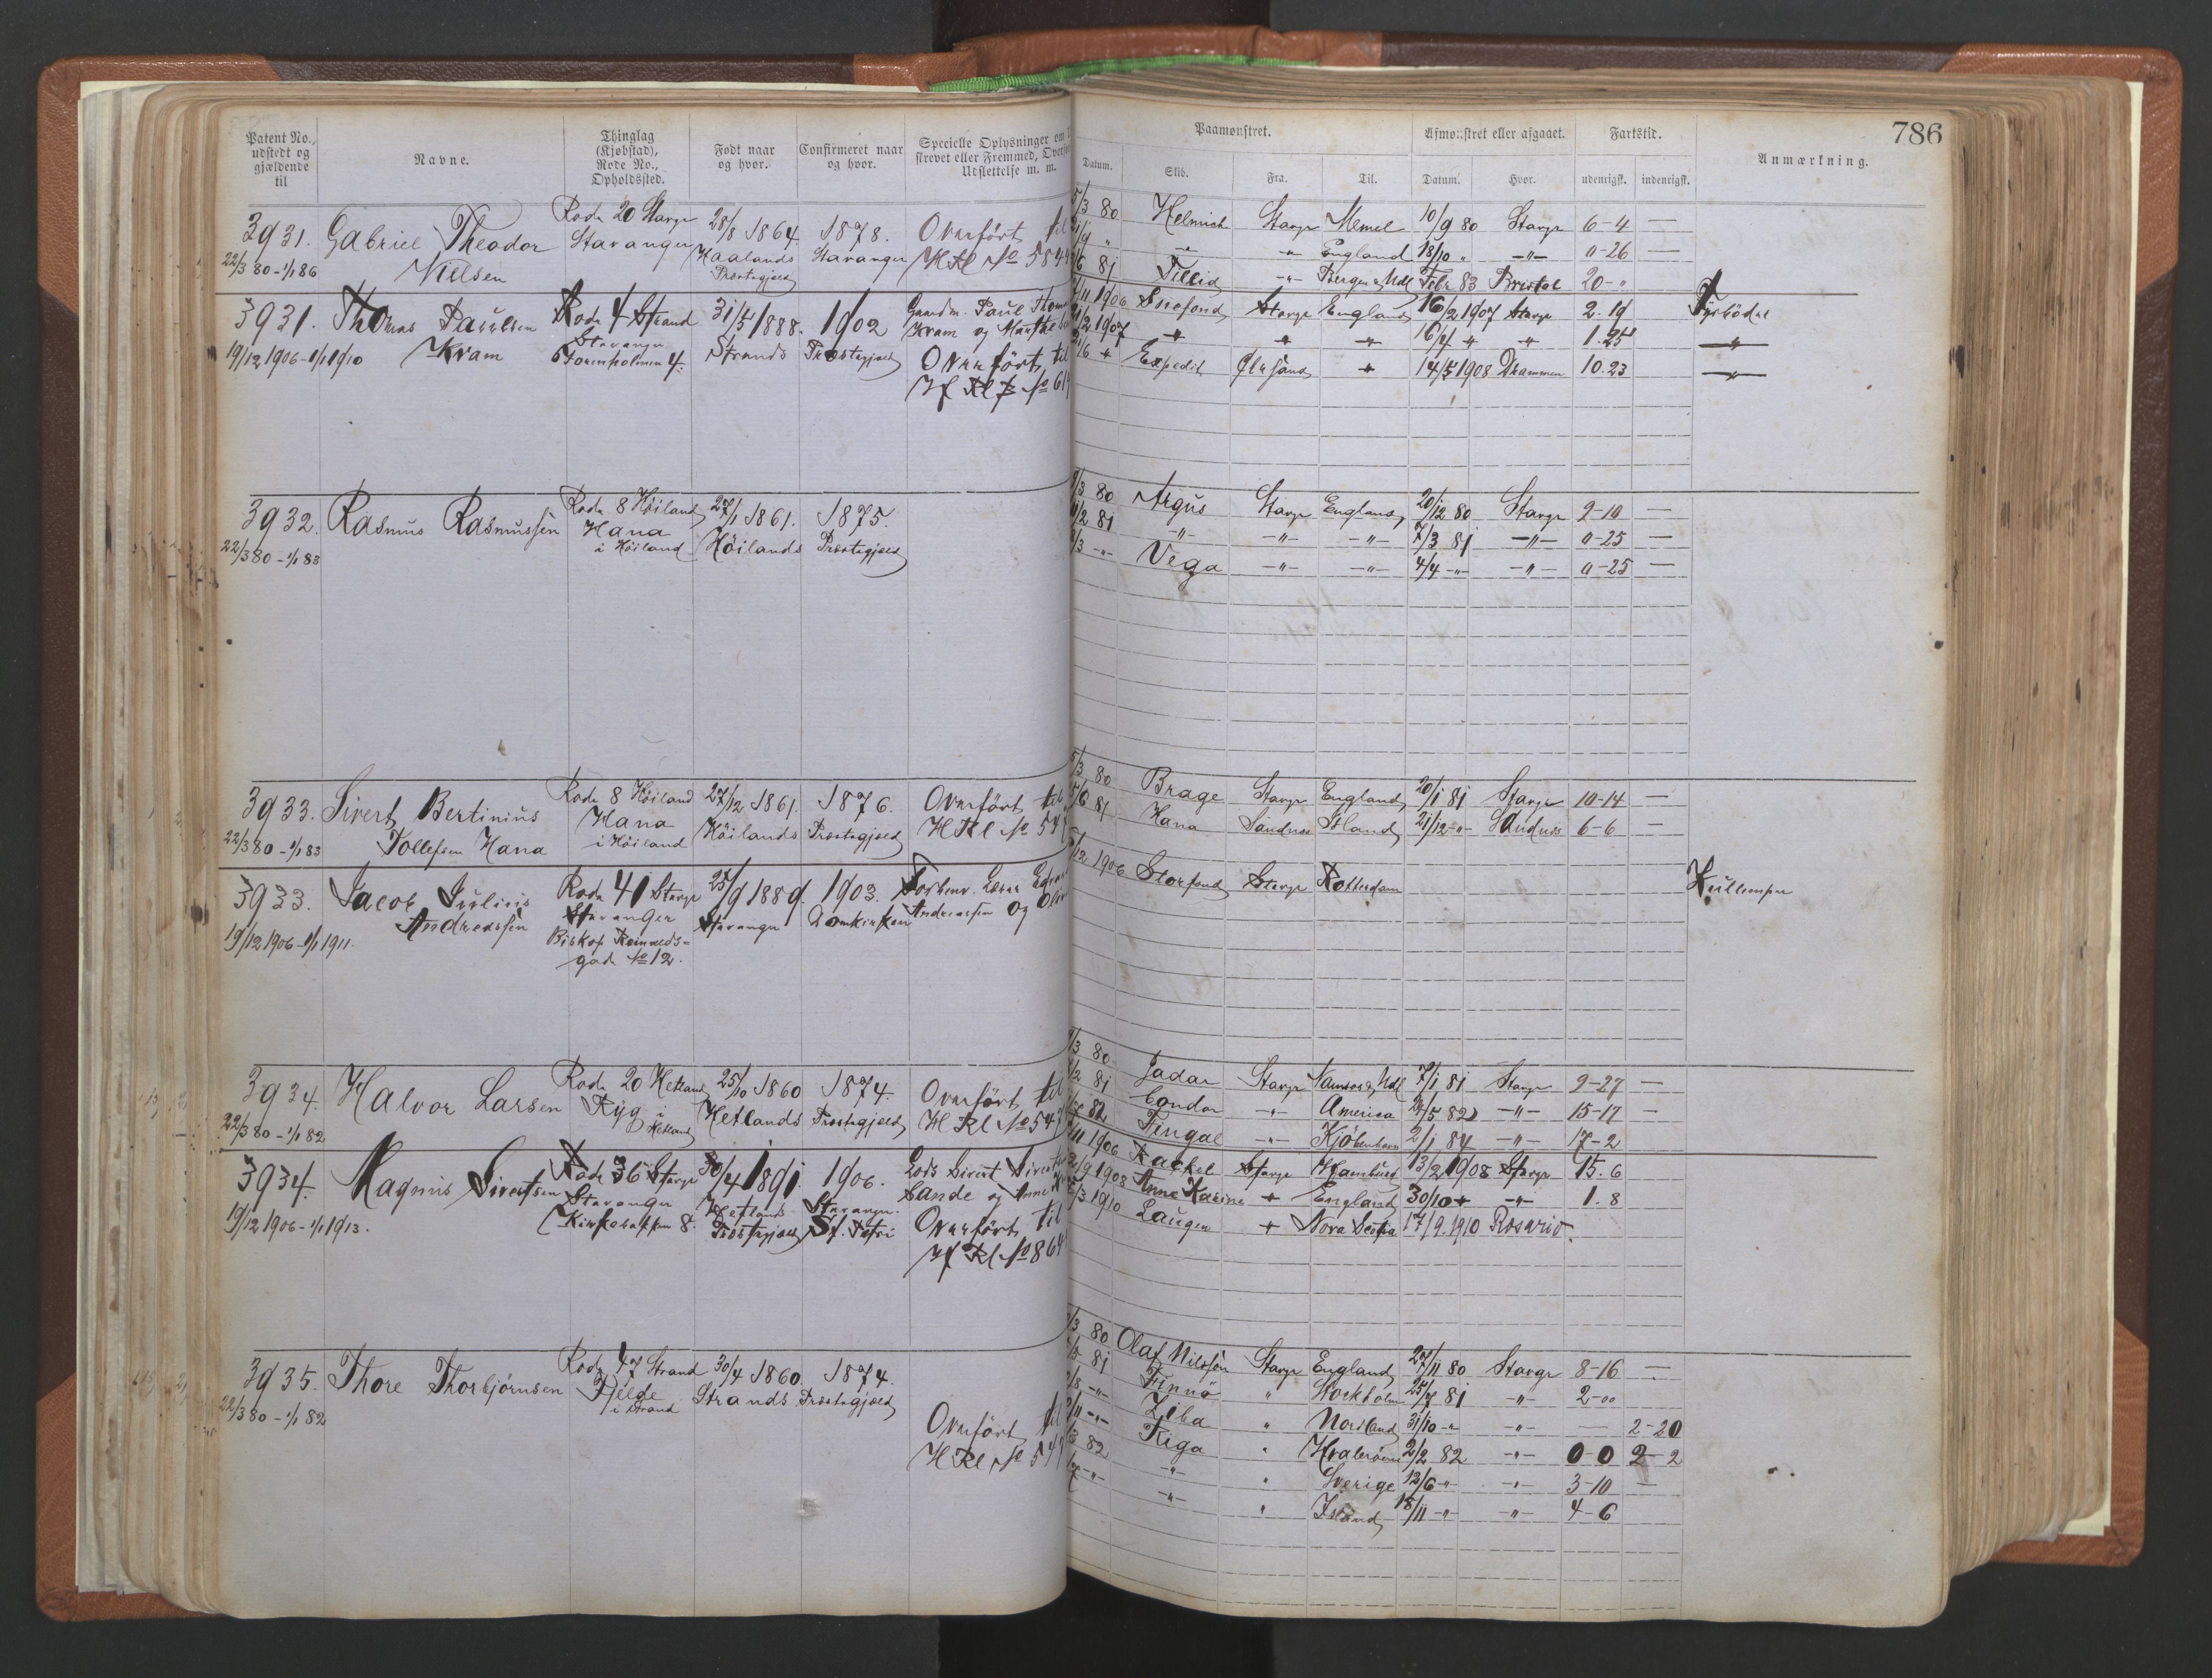 786
Patent No., udstedt og gjældende til
Navne.
Thinglag (Kjøbstad), Rode No., Opholdssted.
Født naar og hvor.
Confirmeret naar og hvor.
Specielle Oplysninger om
strevet eller Fremmed,
Udslettelse m. m.
Paamønstret.
Afmønstret eller afgaaet.
Fartstid.
Anmærkning.
Datum.
Skib.
Fra.
Til.
Datum.
Hvor.
udenrigsk.
indenrigsk.
3931. Gabriel Theodor Nielsen
22/3 80 - 1/1 86
Rode 20 Stavgr Stavanger
28/8 1864. Haalands Præstegjeld
1878. Stavanger
Overført til
/3 80 Helmich Stavgr Memel 10/9 80 Stavgr 6-4 —
/9 " -"- -"- England 18/10 " -"- "-26 —
/6 81 Fillid -"- Bergen & Udl Febr 83 Bristol 20-"
3931. Thomas Paulsen Kram
19/12 1906 - 1/1 1910
Rode 4 Strand Stavanger 4.
31/5 1888. Strands Præstegjeld
1902
Gaardm. Paul
Kram og Marthe
Overført til
/11 1906 Snefond Stavgr England 16/2 1907 Stavgr 2.19
/2 1907 " " " 16/4 " " 1.25 "
/6 " Expedit " 14/5 1908 Drammen 10.23 "
3932. Rasmus Rasmussen
22/3 80 - 1/1 83
Rode 8 Höiland Hana i Höiland
27/1 1861. Höilands Præstegjeld
1875.
/3 80 Argus Stavgr England 20/12 80 Stavgr 9-10 —
/2 81 -"- -"- -"- 7/3 81 -"- "-25 —
/3 -"- Vega -"- -"- 4/4 -"- -"- "-25 —
3933. Sivert Bertinius Tollefsen Hana
22/3 80 - 1/1 83
Rode 8 Höiland Hana i Höiland
27/12 1861. Höilands Præstegjeld
1876.
Overført til
/3 80 Brage Stavgr England 20/1 81 Stavgr 10-14 —
/6 81 Hana Sandnes Island 21/12 -"- Sandnes 6-6 —
3933. Jacob Julius Andreassen
19/12 1906 - 1/1 1911.
Rode 41 Stavgr Stavanger Biskop Reinalds- gade No 12.
25/9 1889. Stavanger
1903. Domkirken
Andreassen og
/12 1906 Storfond Stavgr Rotterdam
Kullemper
3934. Halvor Larsen
22/3 80 - 1/1 82
Rode 20 Hetland Ryg i Hetland
25/10 1860 Hetlands Præstegjeld
1874.
Overført til
/3 80 Jadar Stavgr Namsos & Udl 7/1 81 Stavgr 9-27 —
/2 81 Condor -"- America /5 82 -"- 15-17 —
82 Fingal -"- Kjöbenhavn 2/1 84 -"- 17-2
3934. Magnus Sivertsen
19/12 1906 - 1/1 1913.
Rode 36 Stavgr Stavanger Kirkebakken 8.
30/4 1891. Hetlands Præstegjeld
1906. Stavanger St. Petri
Lods Sivert
Sande og Anne
Overført til
/11 1906 Rachel Stavgr Hamburg 13/2 1908 Stavgr 15.6
/9 1908 Anne Karine " England 30/10 " -"- 1.8
/3 1910 Laugen " Nova Scotia 17/9 1910 Rosario.
3935. Thore Thorbjørnsen
22/3 80 - 1/1 82
Rode 47 Strand Fjelde i Strand
30/4 1860. Strands Præstegjeld
1874.
Overført til
/3 80 Olaf Nilssen Stavgr England 27/11 80 Stavgr 8-16 —
81 Finnö " Stockholm 25/7 81 -"- 2-00
/8 -"- Ziba " Nordland 31/10 -"- -"- — 2-20
/11 -"- Riga " Hvalerøerne 2/2 82 -"- 0-0 2-2
82 -"- " Sverige 13/6 -"- -"- 3-10 —
-"- -"- " Island 18/11 -"- -"- 4-6